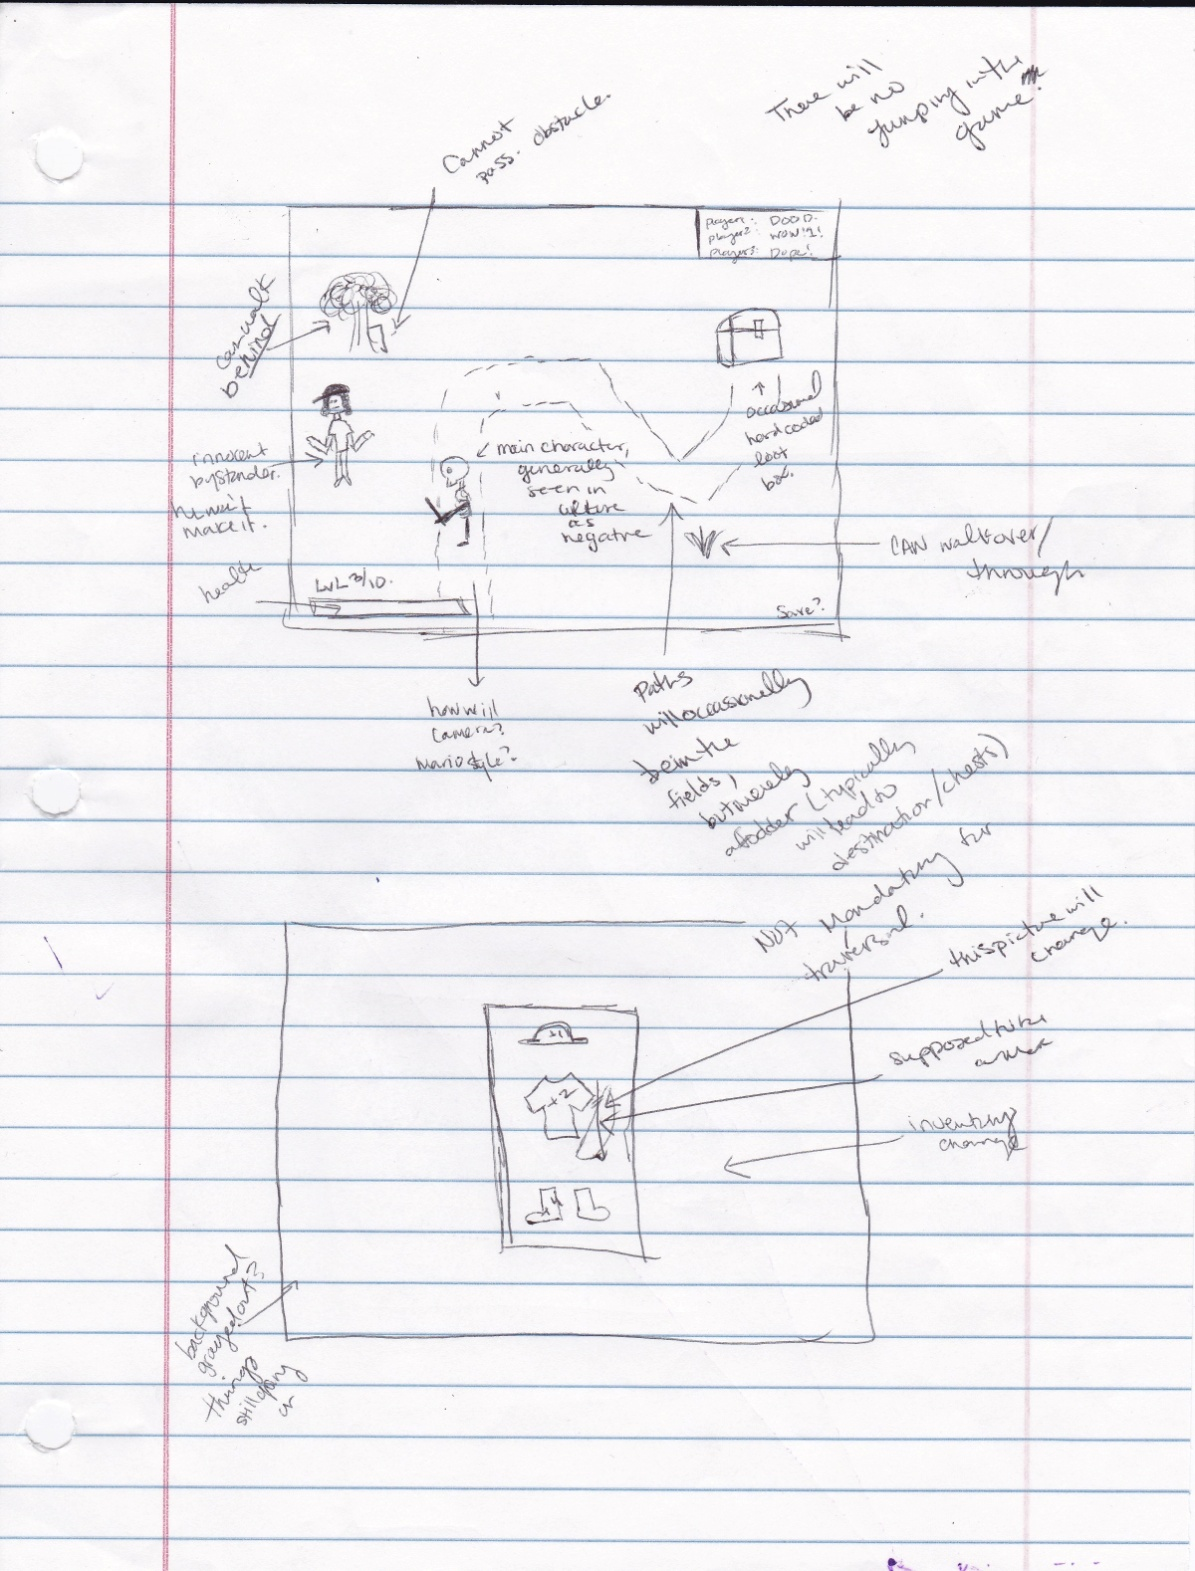 There will
be no
jumping in the
game!
Cannot
pass. obstacle.
player1: DOOD.
player2: WOW!1!
player3: Dope!
can walk
behind
innocent
bystander.
he won't
make it.
main character,
generally
seen in
culture
as
negative
occasional
hardcoded
loot
box.
CAN walk over/
through
health
LVL 3/10.
Save?
how will
camera?
Mario style?
Paths
will occassionally
be in the
fields,
but merely
a fodder (typically
will lead to
destination/chests)
Not Mandatory for
traversal.
this picture will
change.
supposed to be
inventory
change
+1
+2
+4
background
grayed out?
things
still going
on